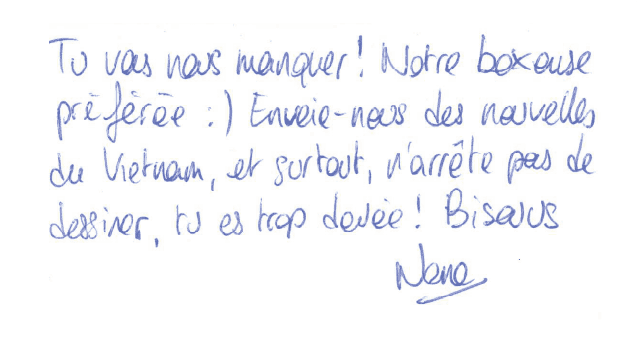 Tu vas nous manquer! Notre boxeuse
préférée :) Envoie-nous des nouvelles
du Vietnam, et surtout, n'arrête pas de
dessiner, tu es trop douée! Bisous
Nana